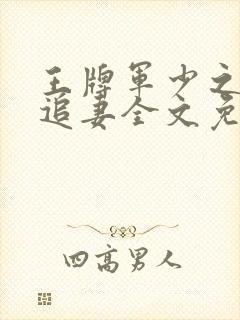 王牌军少之
追妻全文免
四高男人